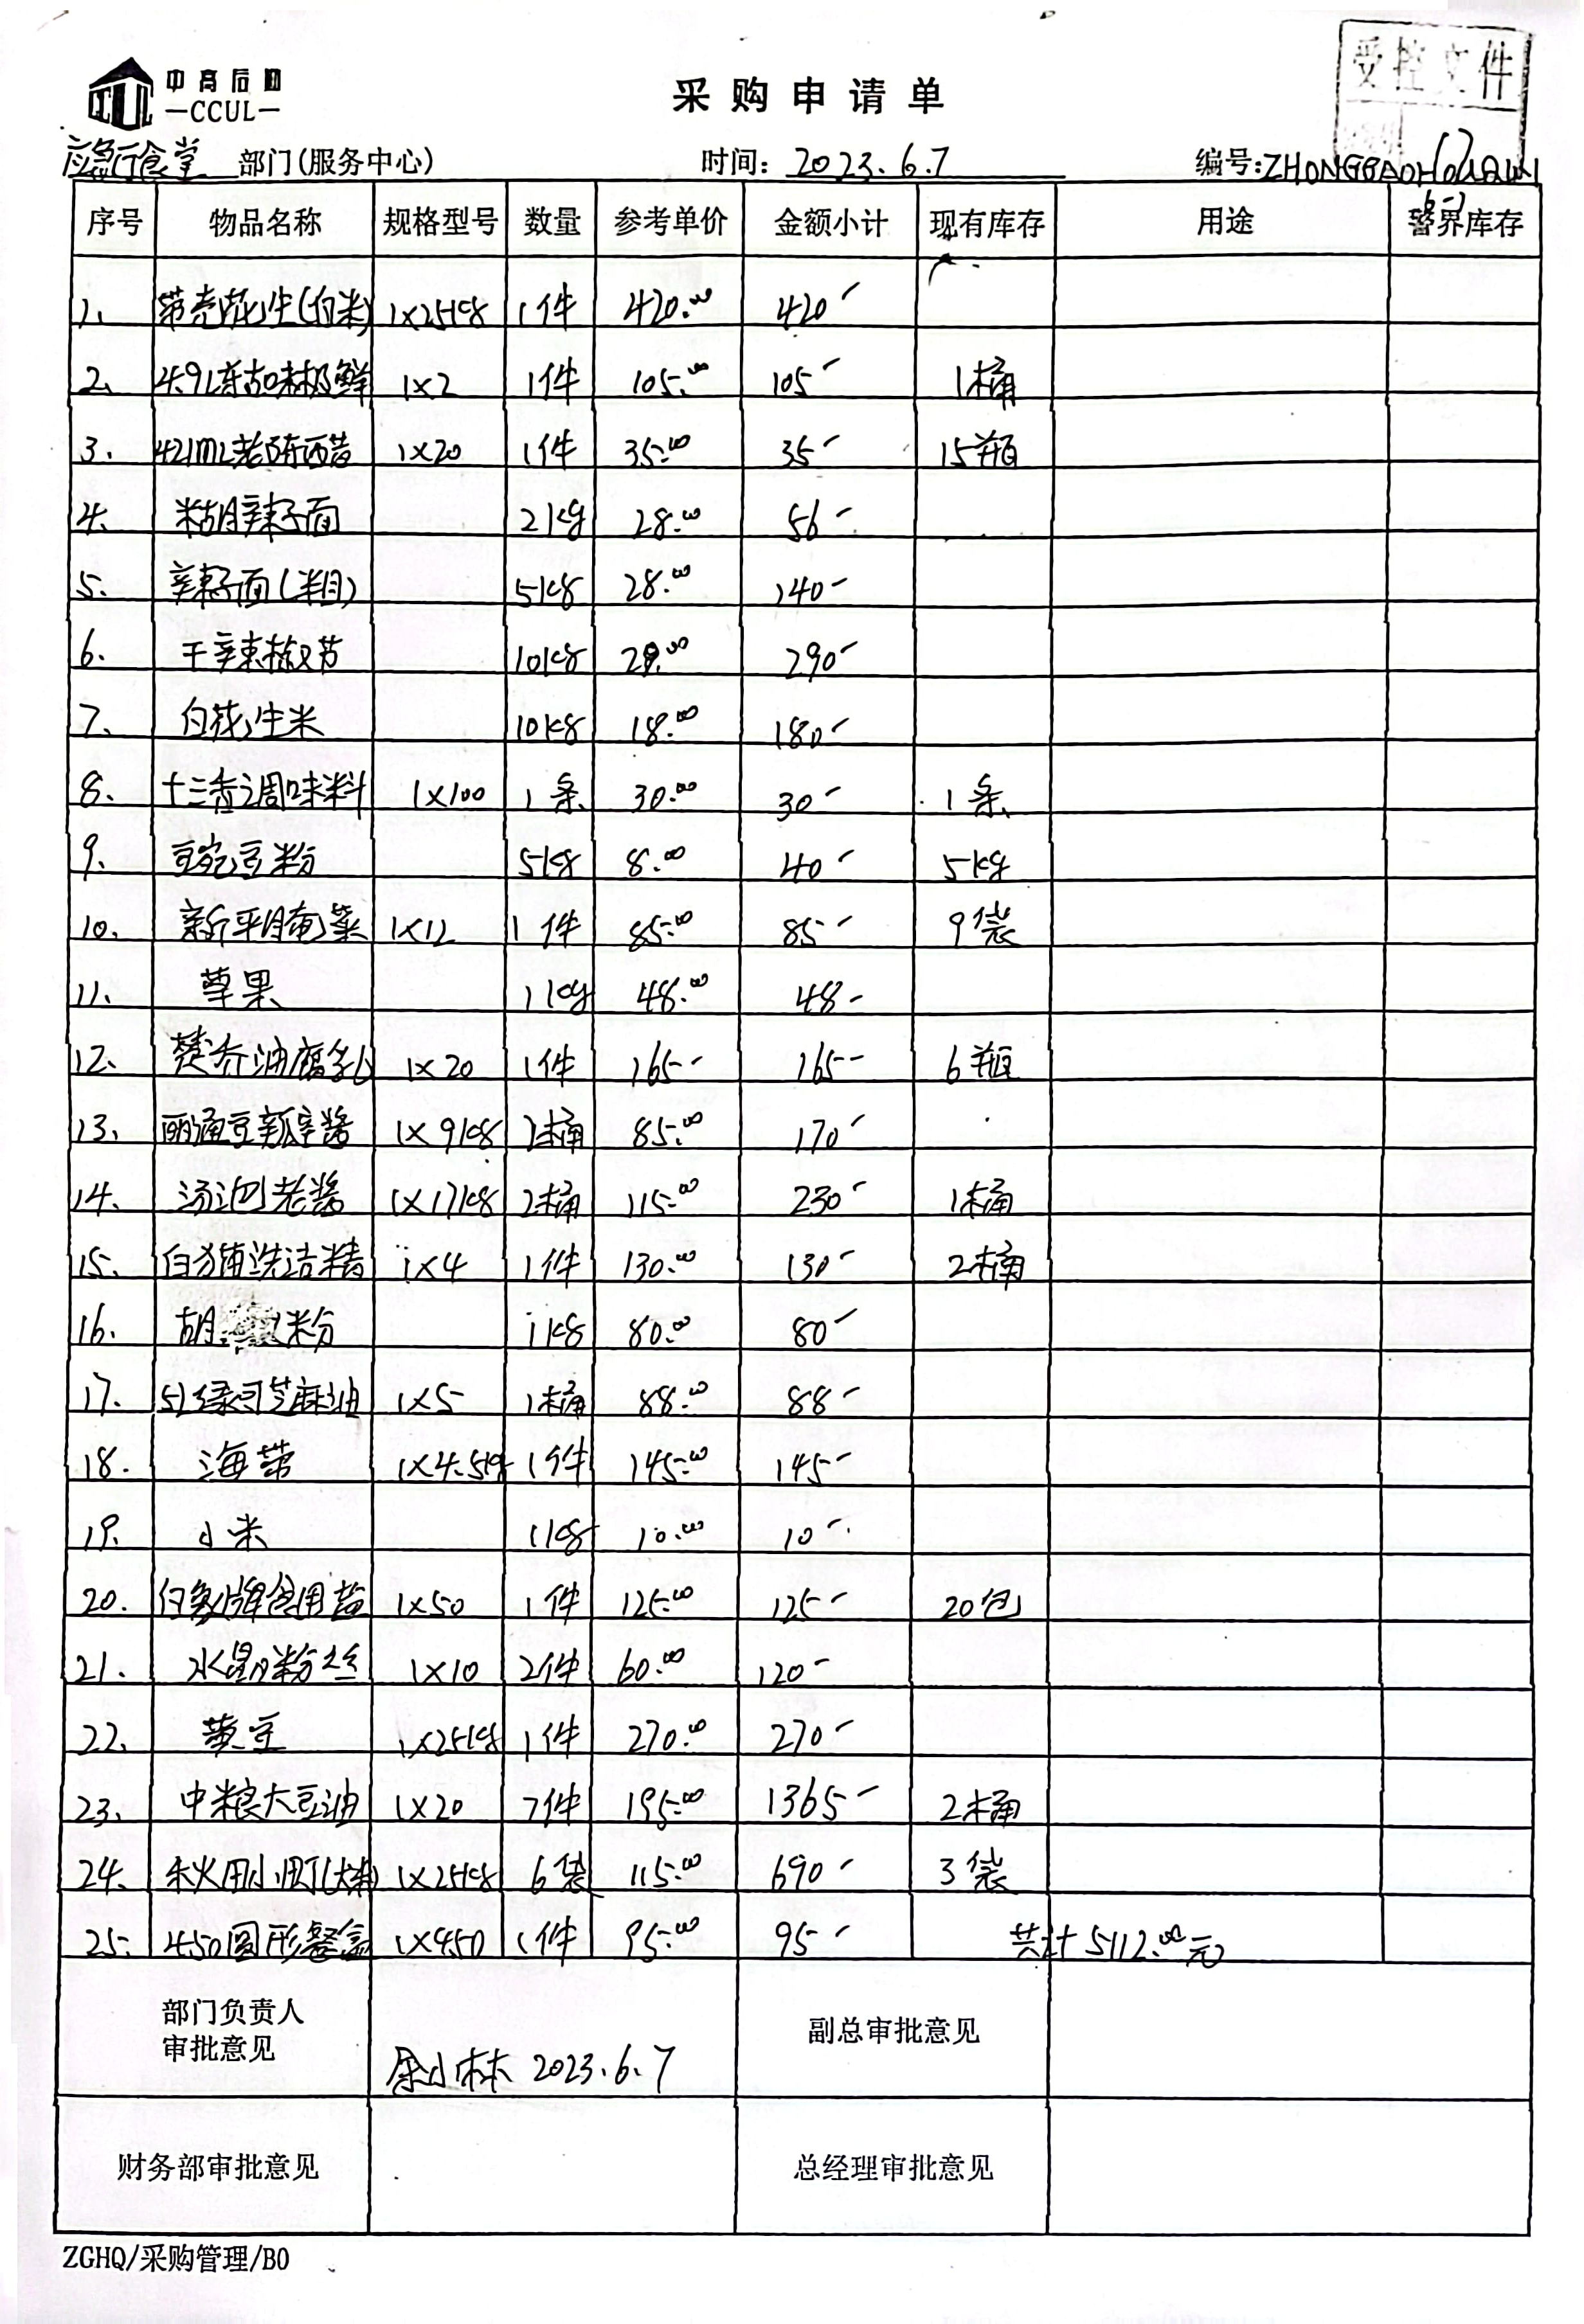 中高后勤
CCUL
采购申请单
受控文件
应急厅食堂 部门(服务中心) 时间: 2023.6.7 编号:
序号 物品名称 规格型号 数量 参考单价 金额小计 现有库存 用途 警界库存
1、 带壳花生(白米) 1×25kg 1件 420.00 420-
2、 4.9L东古味极鲜 1×2 1件 105.00 105- 1桶
3、 421ml老陈醋 1×20 1件 35.00 35- 15瓶
4、 糊辣子面 2kg 28.00 56-
5、 辣子面(粗) 5kg 28.00 140-
6、 干辣椒节 10kg 29.00 290-
7、 白花生米 10kg 18.00 180-
8、 十三香调味料 1×100 1条 30.00 30- 1条
9、 豌豆粉 5kg 8.00 40- 5kg
10、 新平腌菜 1×12 1件 85.00 85- 9袋
11、 草果 1kg 48.00 48-
12、 油腐乳 1×20 1件 165- 165- 6瓶
13、 豆瓣酱 1×9kg 2桶 85.00 170-
14、 汤池老酱 1×17kg 2桶 115.00 230- 1桶
15、 白猫洗洁精 1×4 1件 130.00 130- 2桶
16、 胡椒粉 1kg 80.00 80-
17、 5L芝麻油 1×5 1桶 88.00 88-
18、 海带 1×4.5kg 1件 145.00 145-
19、 小米 1kg 10.00 10-
20、 白象牌食用盐 1×50 1件 125.00 125- 20包
21、 水晶粉丝 1×10 2件 60.00 120-
22、 黄豆 1×25kg 1件 270.00 270-
23、 中粮大豆油 1×20 7件 195.00 1365- 2桶
24、 1×25kg 6袋 115.00 690- 3袋
25、 450圆形餐盒 1×450 1件 95.00 95- 共计5112.00元
部门负责人
审批意见
2023.6.7
副总审批意见
财务部审批意见 总经理审批意见
ZGHQ/采购管理/B0